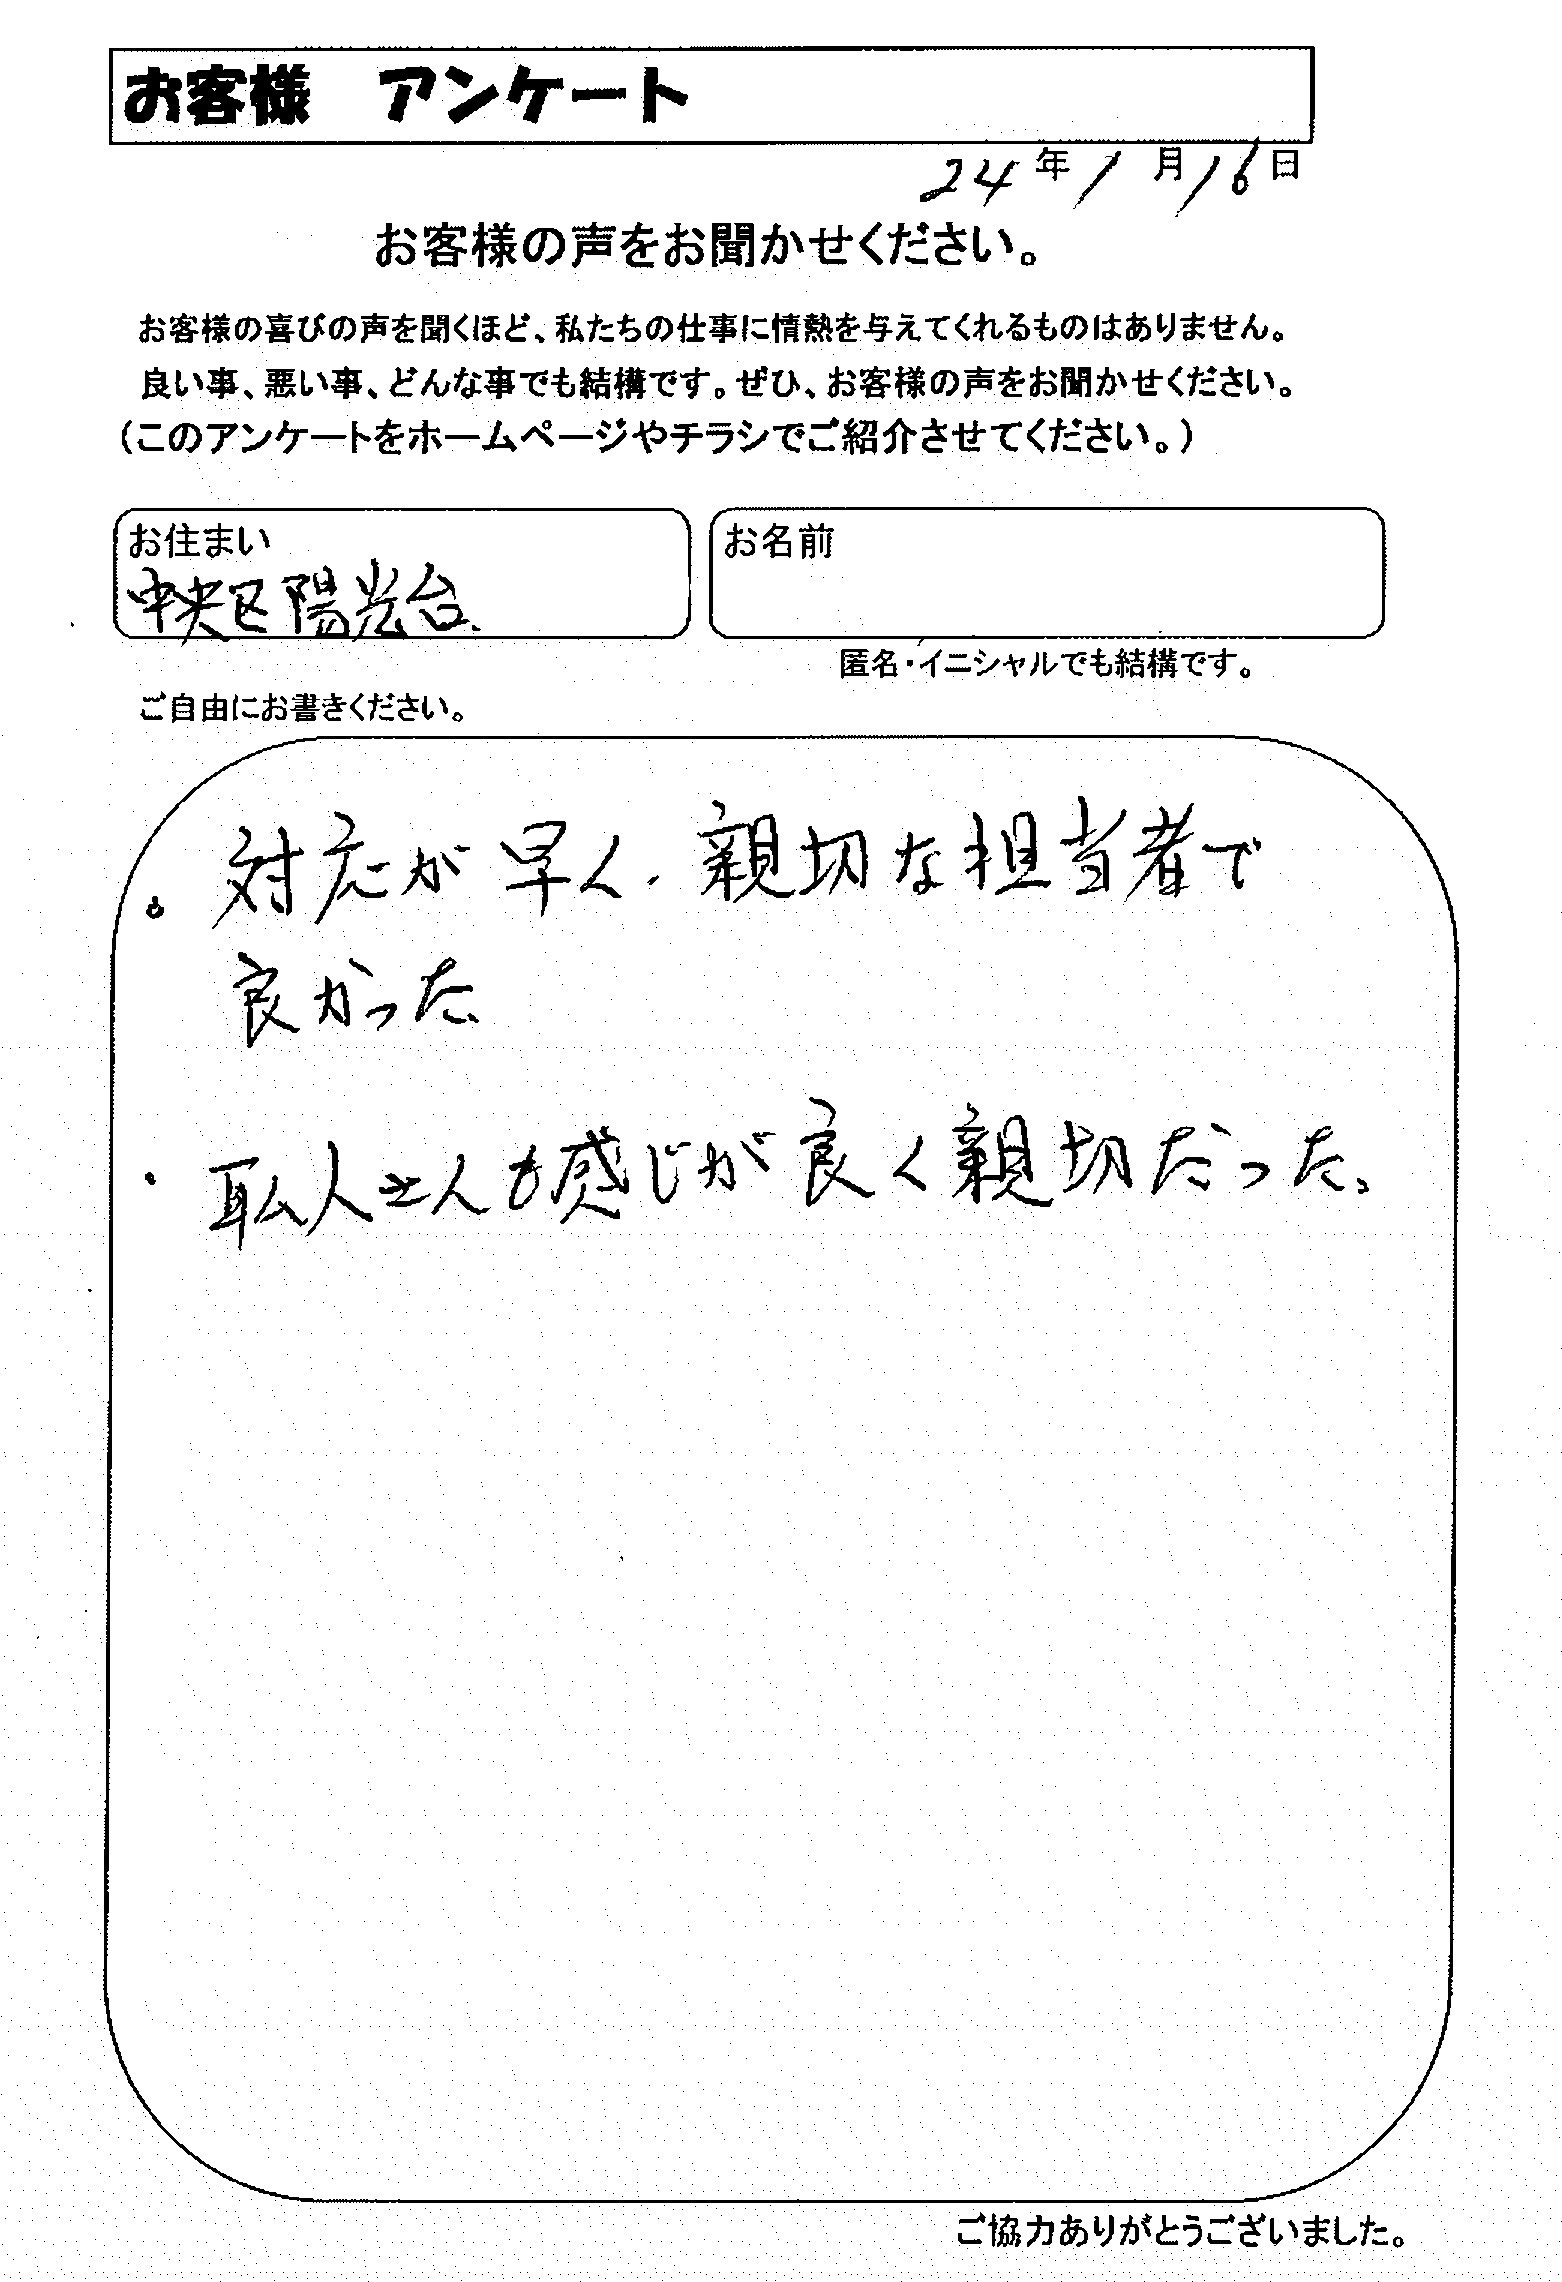 お客様　アンケート
24年1月16日
お客様の声をお聞かせください。
お客様の喜びの声を聞くほど、私たちの仕事に情熱を与えてくれるものはありません。
良い事、悪い事、どんな事でも結構です。ぜひ、お客様の声をお聞かせください。
（このアンケートをホームページやチラシでご紹介させてください。）
お住まい
中央区陽光台.
お名前
匿名・イニシャルでも結構です。
ご自由にお書きください。
。対応が早く、親切な担当者で
良かった、
・耺人さんも感じが良く親切だった、
ご協力ありがとうございました。